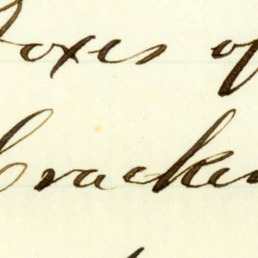 Boxes of
Cracker